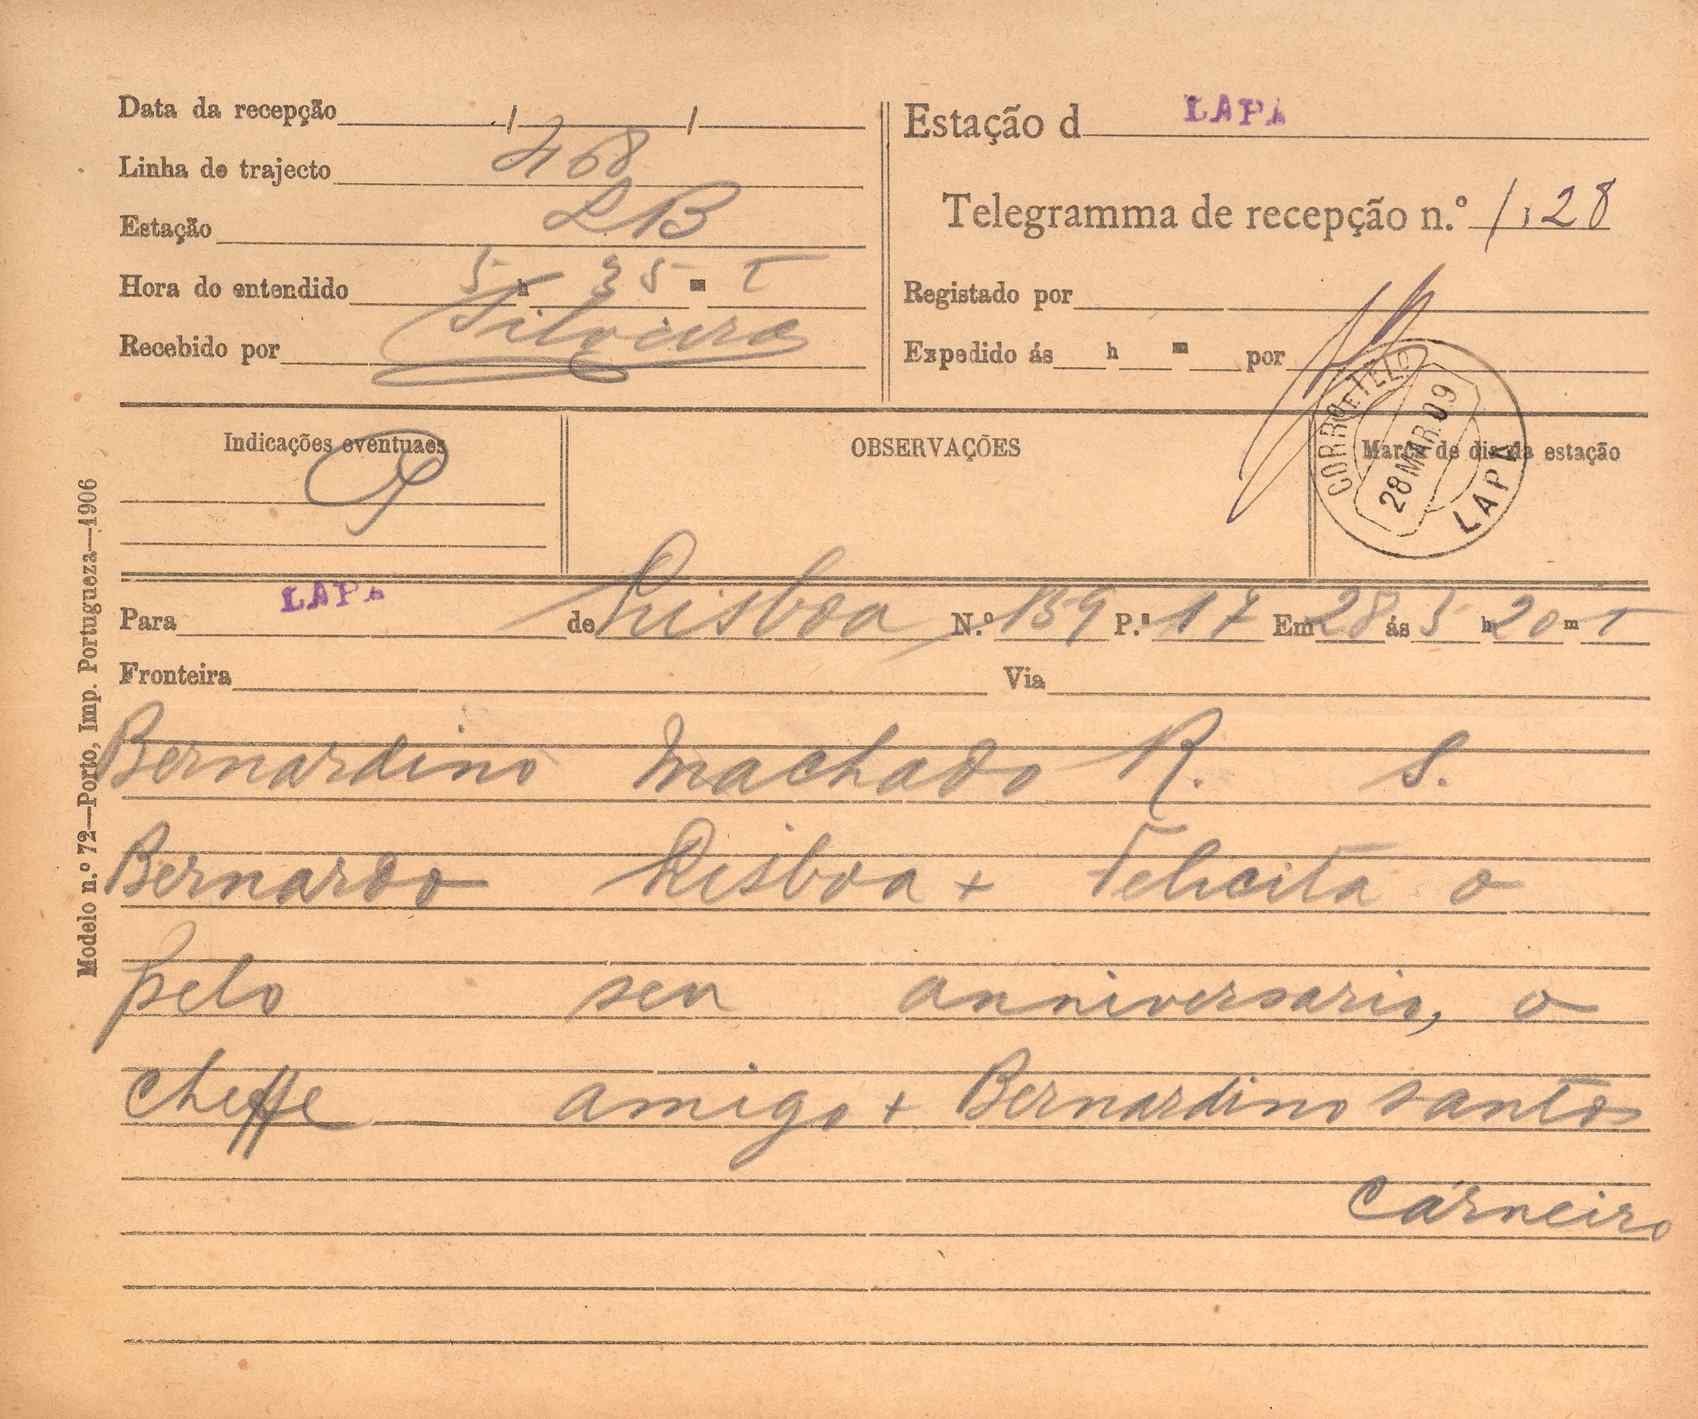 Data da recepção / /
Linha de trajecto 468
Estação LB
Hora do entendido 5 h 35 m T
Recebido por Silveira
Estação d LAPA
Telegramma de recepção n.º 1,28
Registado por
Expedido ás h m por
Indicações eventuaes
OBSERVAÇÕES
Marca de dia da estação
CORRO E TELO
28 MAR. 09
LAPA
Para LAPA de Lisboa N.º 159 P.ª 17 Em 28 ás 5 h 20 m T
Fronteira Via
Bernardino Machado R. S.
Bernardo Lisboa + Felicita o
pelo seu anniversario, o
cheffe amigo + Bernardino Santos
Carneiro
Modelo n.º 72—Porto, Imp. Portugueza—1906